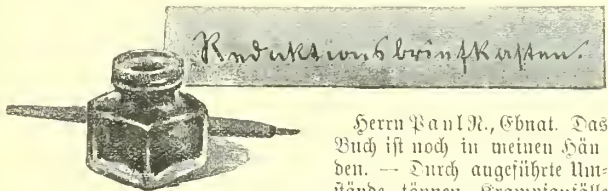 Redaktionsbriefkasten.
Herrn Paul R., Ebnat. Das
Buch ist noch in meinen Hän
den. — Durch angeführte Um-
stände können Krampfanfälle